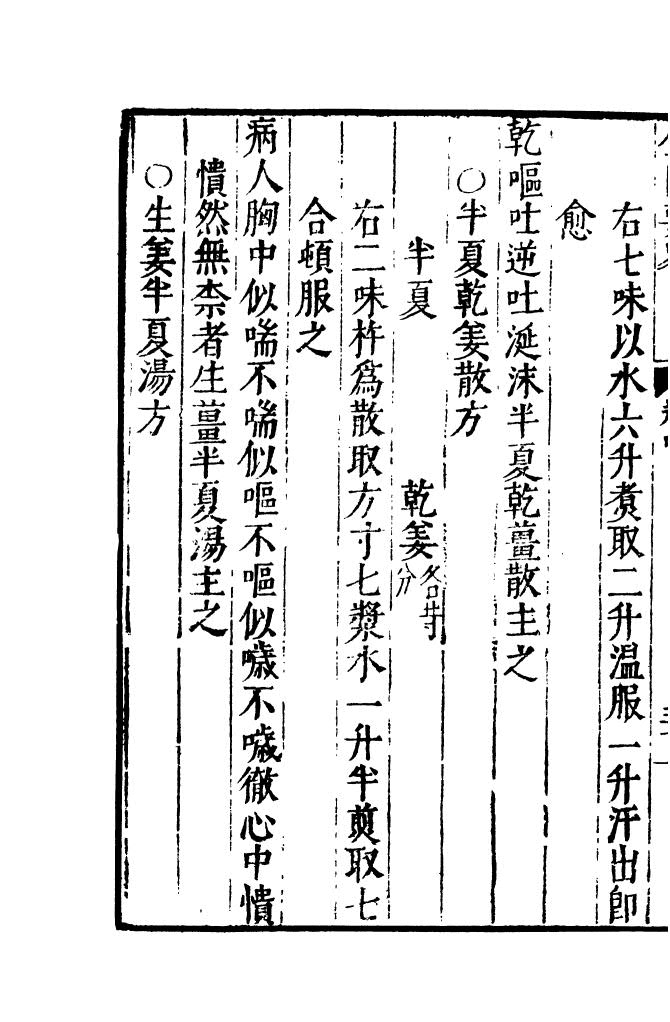 右七味以水六升煑取二升温服一升汗出卽
愈
乾嘔吐逆吐涎沫半夏乾薑散主之
○半夏乾姜散方
半夏　乾姜各等分
右二味杵爲散取方寸七漿水一升半煎取七
合頓服之
病人胸中似喘不喘似嘔不嘔似噦不噦徹心中憒
憒然無柰者生薑半夏湯主之
○生姜半夏湯方